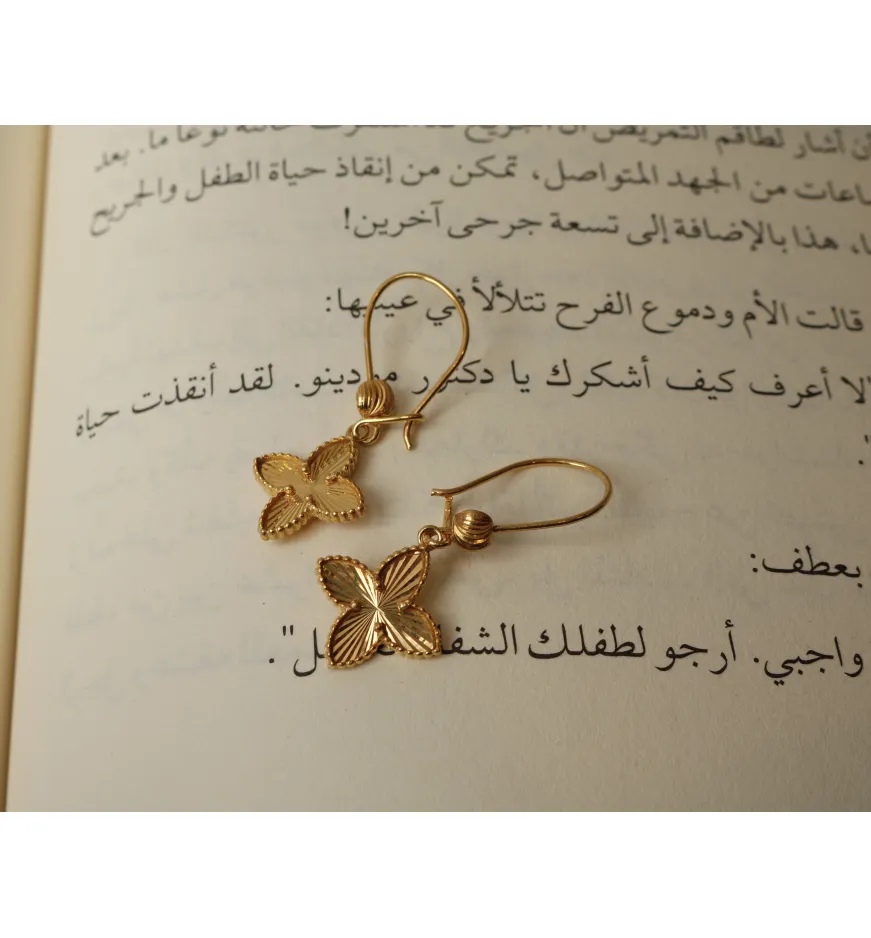 أشار لطاقم التمريض أن الجريح نوعا ما. بعد
ساعات من الجهد المتواصل، تمكن من إنقاذ حياة الطفل والجريح
هذا بالإضافة إلى تسعة جرحى آخرين!
قالت الأم ودموع الفرح تتلألأ في عينيها:
لا أعرف كيف أشكرك يا دكتور مردينو. لقد أنقذت حياة
بعطف:
واجبي. أرجو لطفلك الشفاء ل".